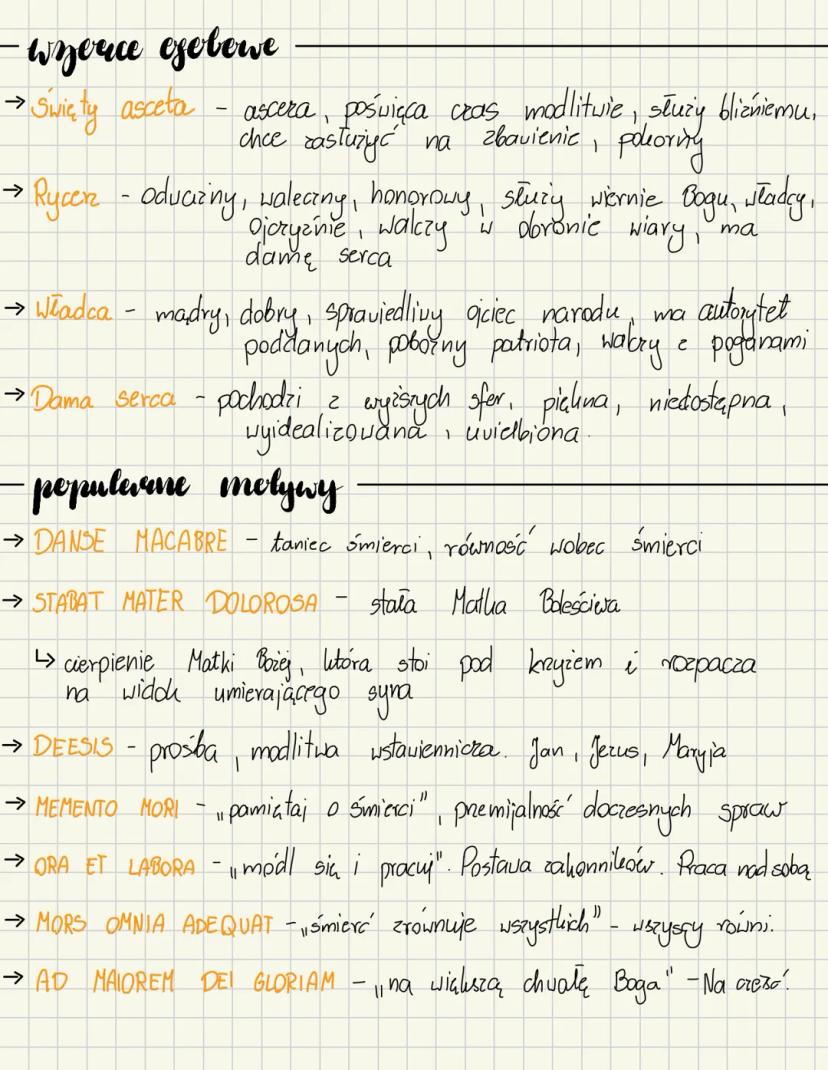 wzorce osobowe
→ Święty asceta - asceza, poświęca czas modlitwie, służy bliźniemu,
chce zasłużyć na zbawienie, pokorny
→ Rycerz - odważny, waleczny, honorowy, służy wiernie Bogu, władcy,
ojczyźnie, walczy w obronie wiary, ma
damę serca
→ Władca - mądry, dobry, sprawiedliwy ojciec narodu, ma autorytet
poddanych, pobożny patriota, walczy z poganami
→ Dama serca - pochodzi z wyższych sfer, piękna, niedostępna,
wyidealizowana, uwielbiona.
popularne motywy
→ DANSE MACABRE - taniec śmierci, równość wobec śmierci
→ STABAT MATER DOLOROSA - stała Matka Boleściwa
↳ cierpienie Matki Bożej, która stoi pod krzyżem i rozpacza
na widok umierającego syna
→ DEESIS - prośba, modlitwa wstawiennicza. Jan, Jezus, Maryja
→ MEMENTO MORI - „pamiętaj o śmierci", przemijalność doczesnych spraw
→ ORA ET LABORA - „módl się i pracuj". Postawa zakonników. Praca nad sobą
→ MORS OMNIA ADEQUAT - „śmierć zrównuje wszystkich" - wszyscy równi.
→ AD MAIOREM DEI GLORIAM - „na większą chwałę Boga" - Na cześć.